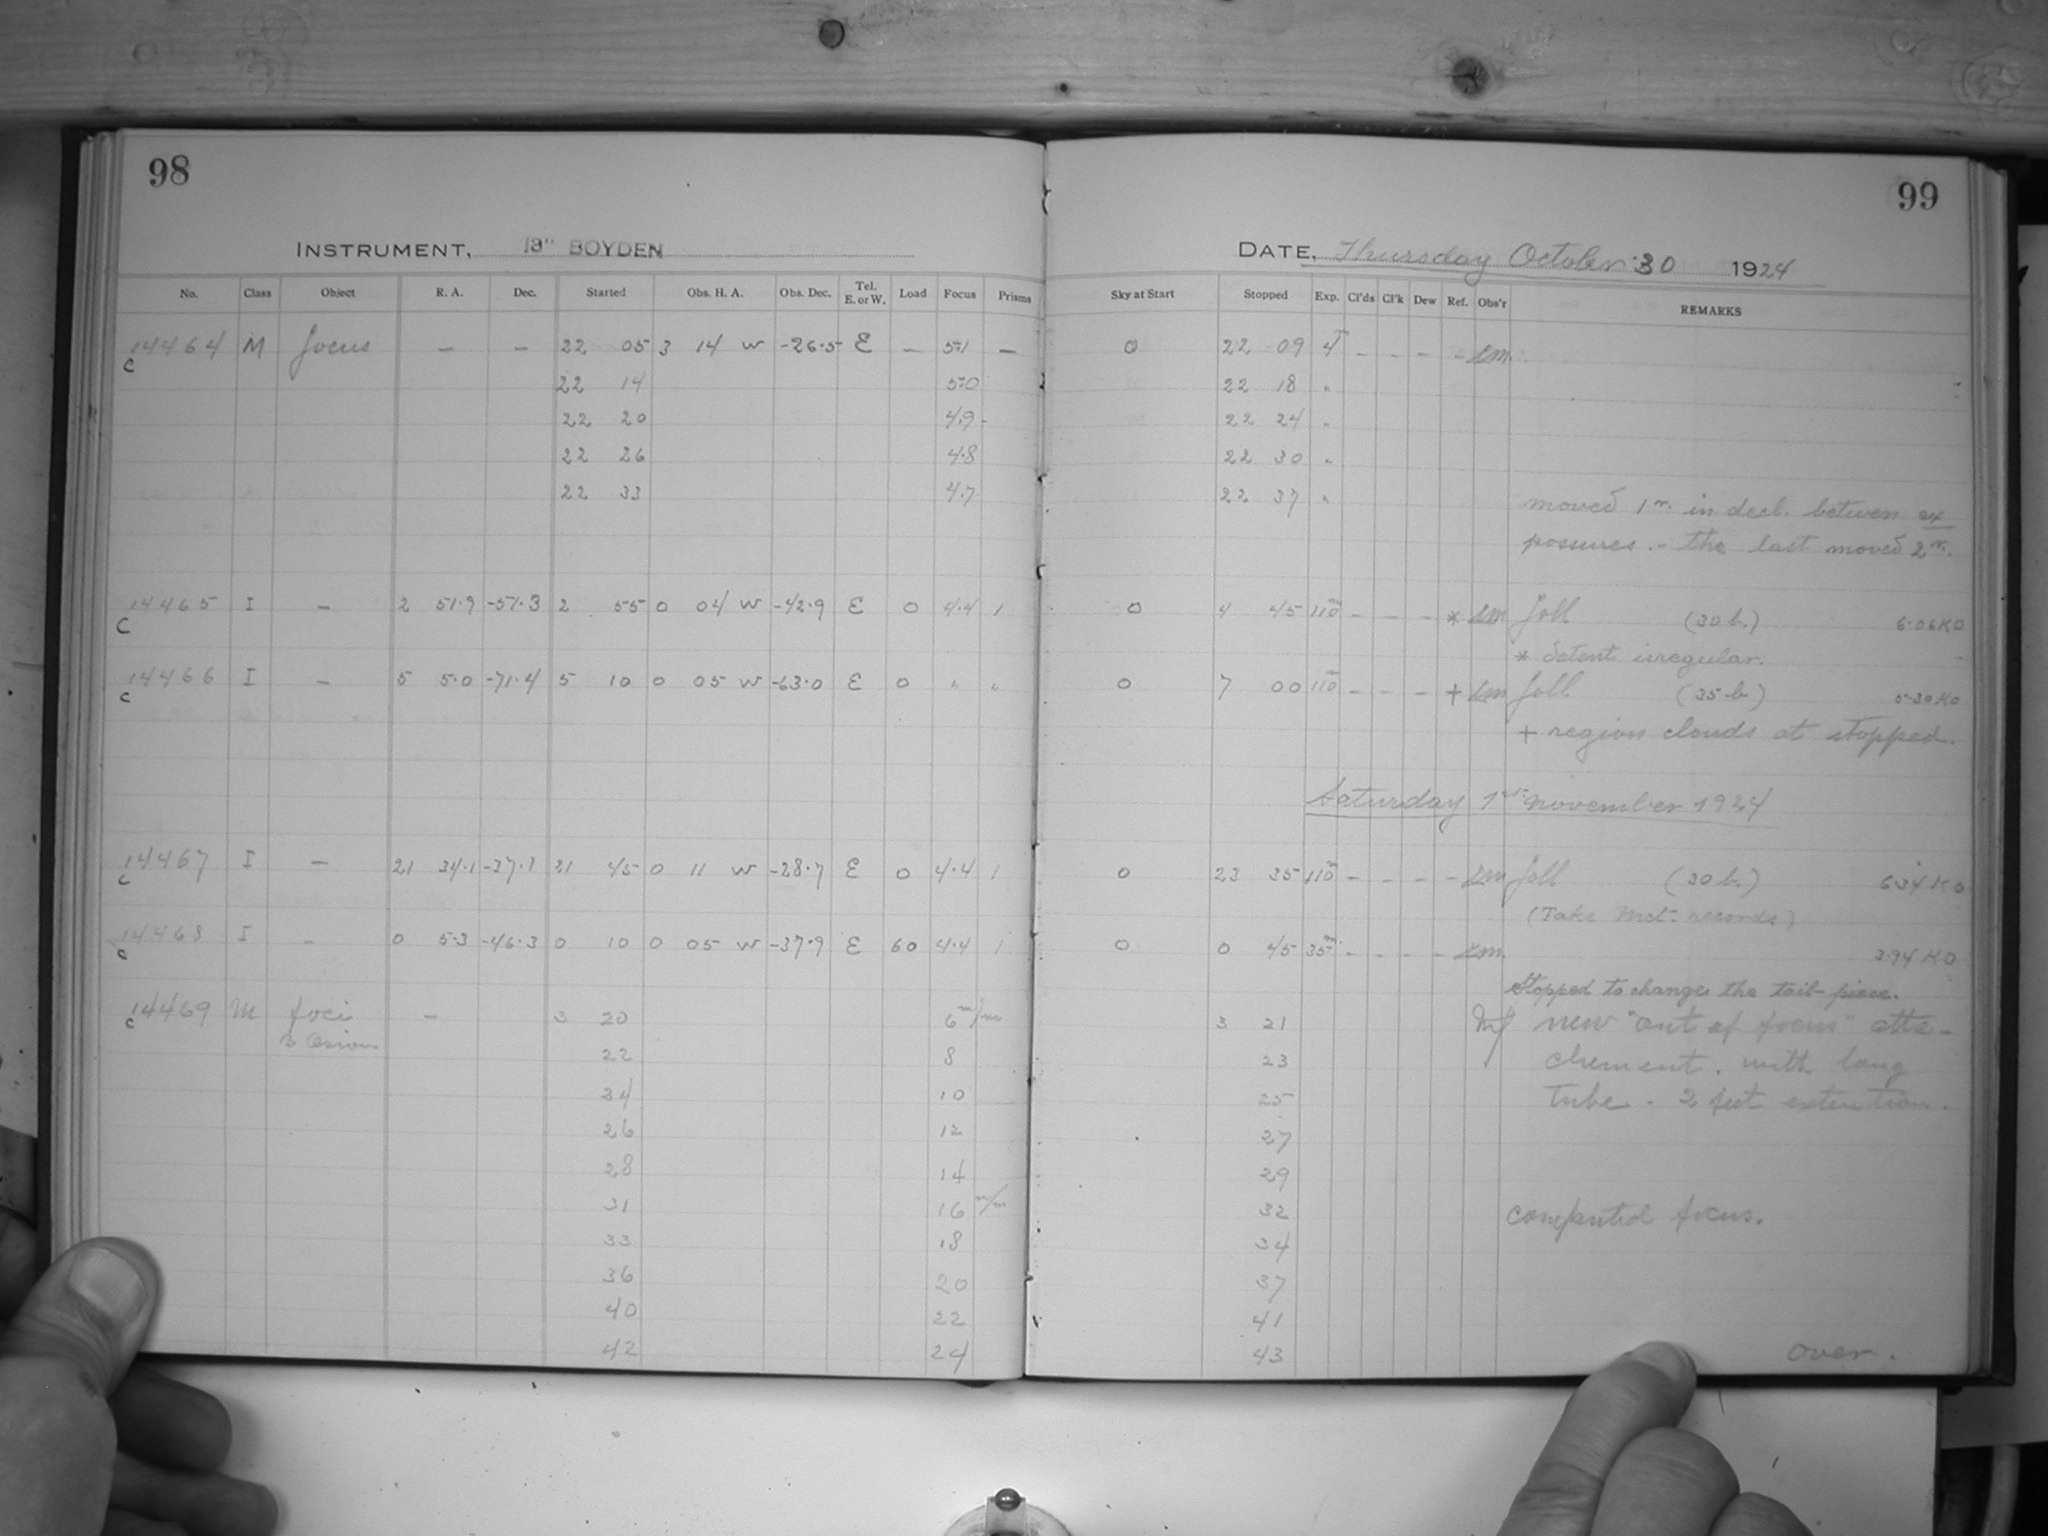 98
INSTRUMENT, 13" BOYDEN
No. Class Object R. A. Dec. Started Obs. H. A. Obs. Dec. Tel. E. or W. Load Focus Prisms
14464 M focus — — 22 05 3 14 W -26.5 E — 5.1 —
C
22 14 5.0
22 20 4.9 -
22 26 4.8
22 33 4.7
14465 I — 2 51.9 -51.3 2 55 0 04 W -42.9 E 0 4.4 1
C
14466 I — 5 5.0 -71.4 5 10 0 05 W -63.0 E 0 " "
C
14467 I — 21 34.1 -37.1 21 45 0 11 W -28.7 E 0 4.4 1
C
14468 I — 0 5.3 -46.3 0 10 0 05 W -37.9 E 60 4.4 1
C
14469 M foci — 3 20 6 m/m
C
22 8
24 10
26 12
28 14
31 16 m/m
33 18
36 20
40 22
42 24
99
DATE, Thursday October 30 1924
Sky at Start Stopped Exp. Cl'ds Cl'k Dew Ref. Obs'r REMARKS
0 22 09 4 - - - -
22 18 "
22 24 "
22 30 "
22 37 "
moved 1m. in decl. between ex
posures. - the last moved 2m.
0 4 45 110m - - - * foll (30 b.) 6.06 KO
* detent irregular.
0 7 00 110m - - - + foll (35 b.) 5.30 KO
+ region clouds at stopped.
Saturday 1st november 1924
0 23 35 110m - - - - foll (30 b.)
(Take Met. records)
0 0 45 35m - - - - 3.94 KO
Stopped to changes the tail-piece.
3 21 new "out of focus" atta-
23 chement. with long
25 tube - 2 feet extention.
27
29
32 computed focus.
34
37
41
43 over.